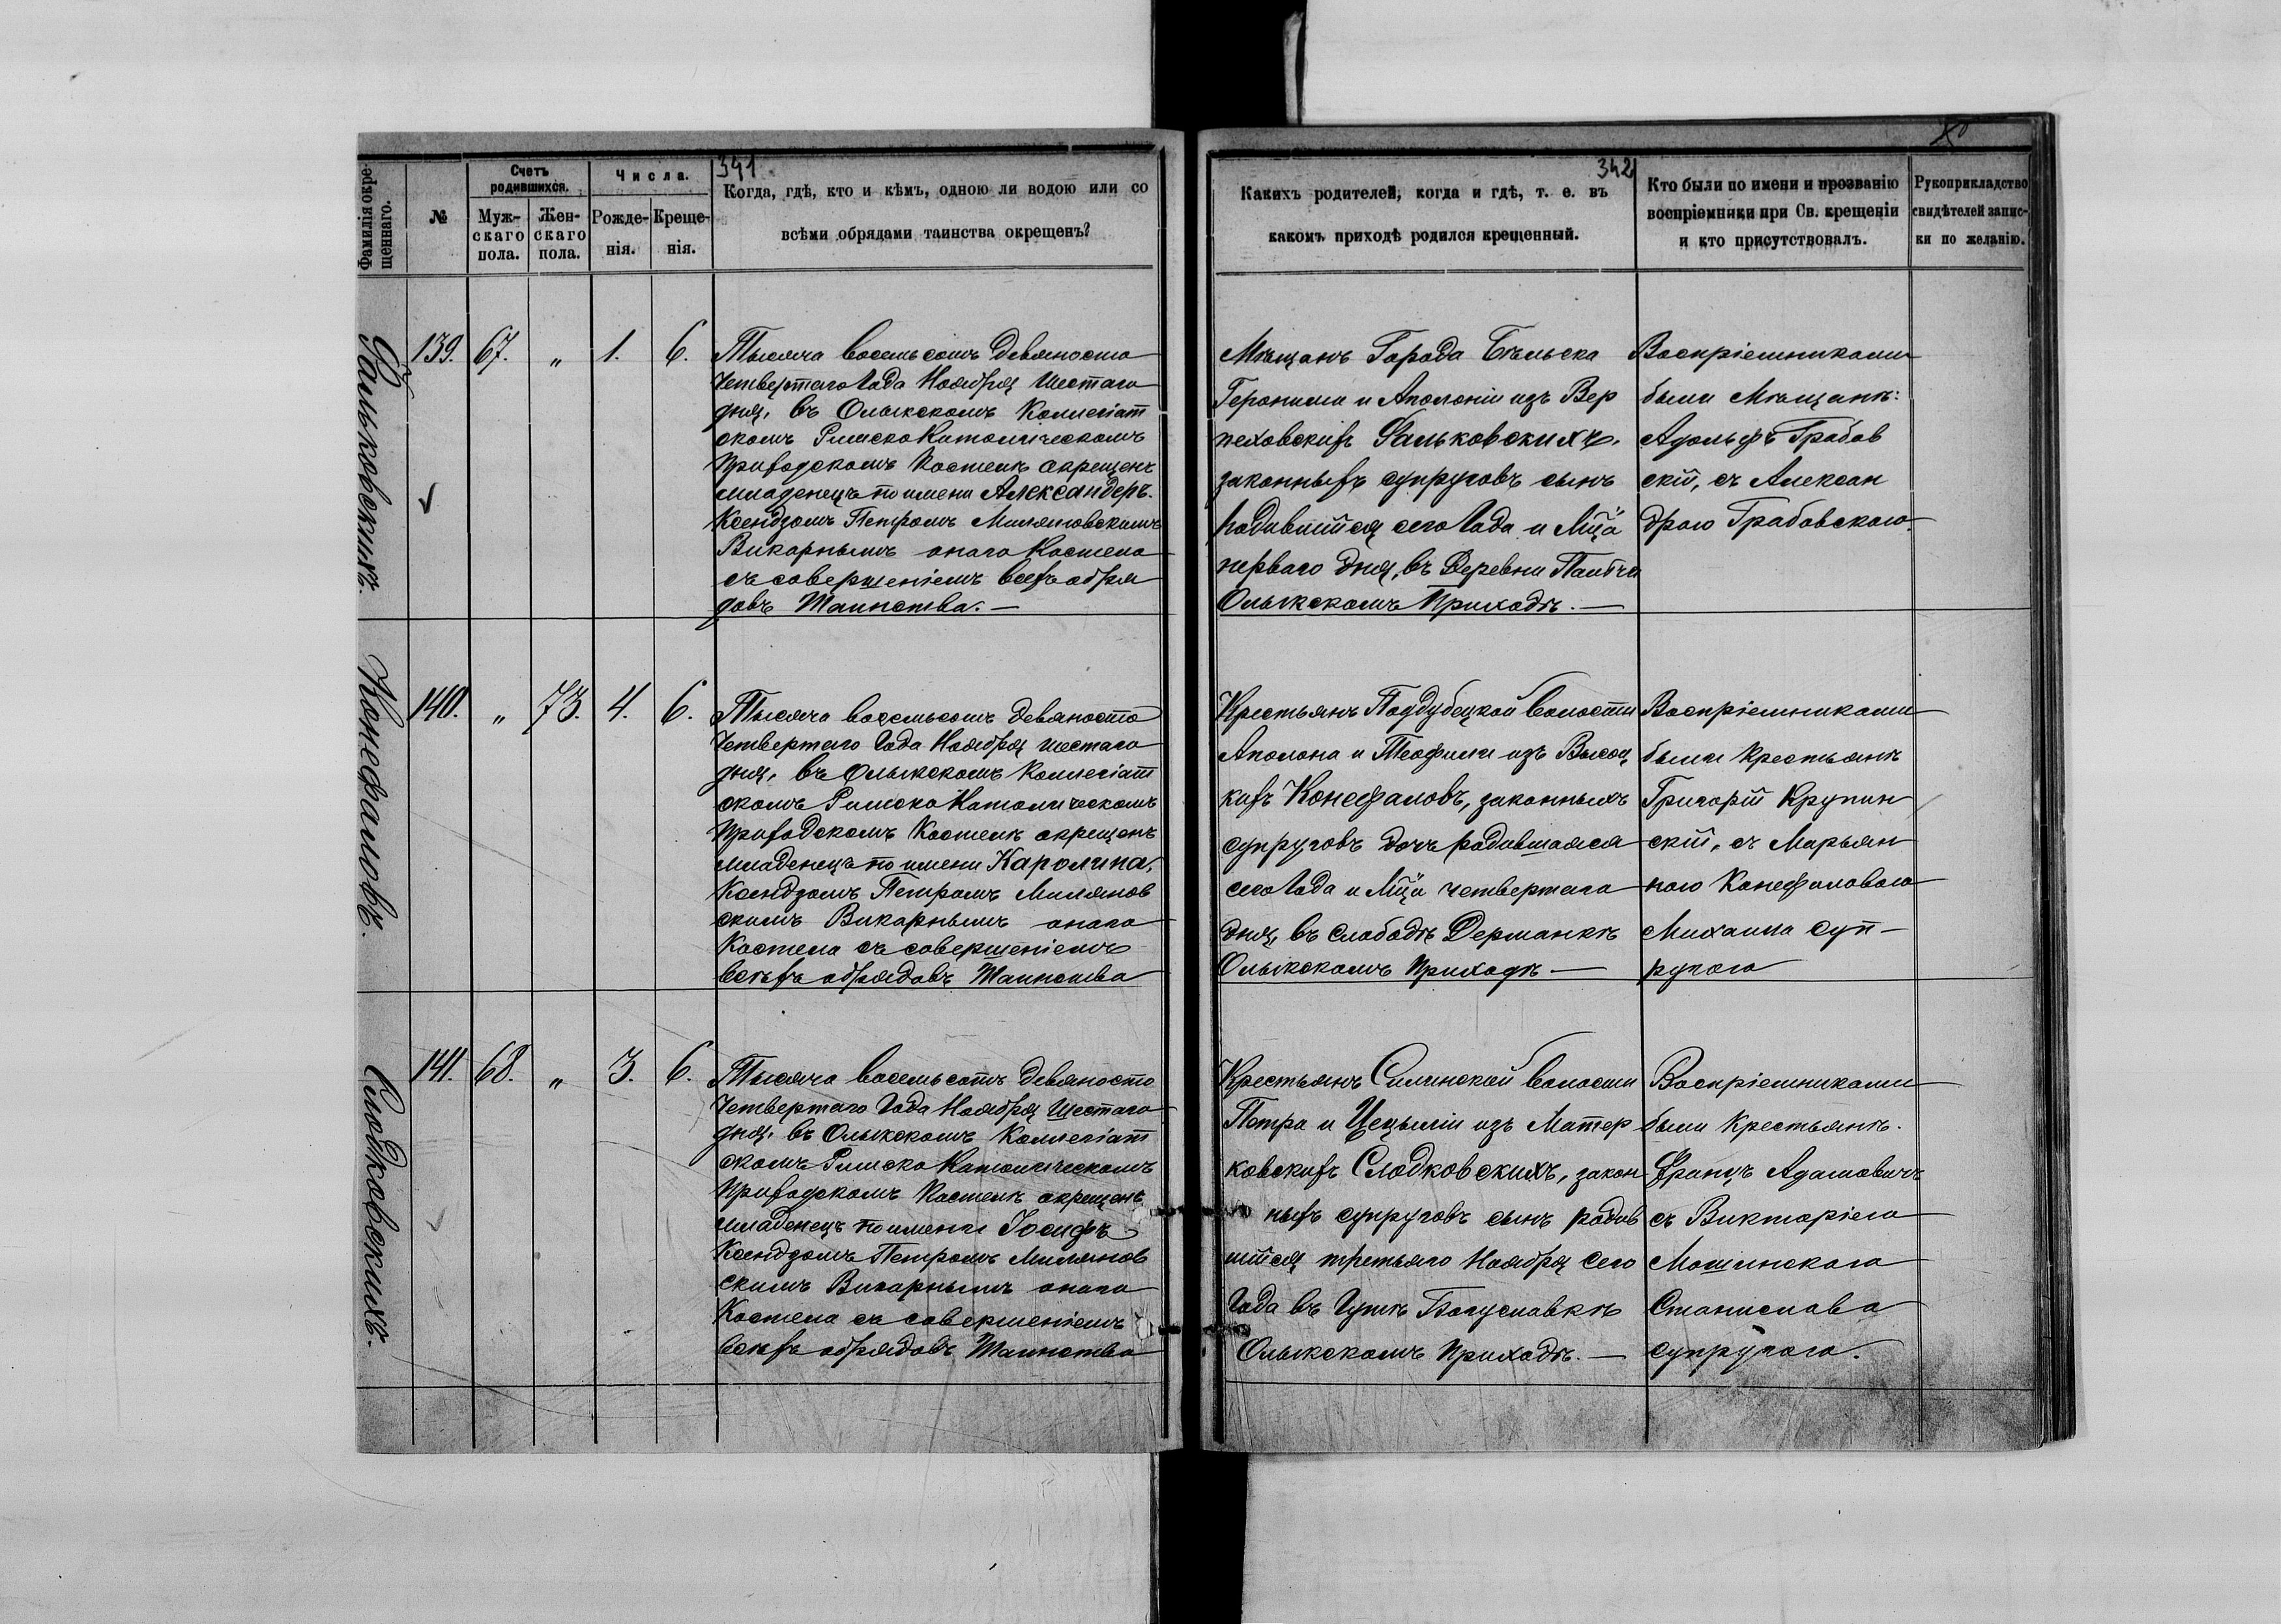 341
342
Фамилія окре-
щеннаго.
№
Счетъ
родившихся.
Муж-
скаго
пола.
Жен-
скаго
пола.
Числа.
Рожде-
нія.
Креще-
нія.
Когда, гдѣ, кто и кѣмъ, одною ли водою или со
всѣми обрядами таинства окрещенъ?
Какихъ родителей, когда и гдѣ, т. е. въ
какомъ приходѣ родился крещенный.
Кто были по имени и прозванію
воспріемники при Св. крещеніи
и кто присутствовалъ.
Рукоприкладство
свидѣтелей запис-
ки по желанію.
Фальковскихъ.
139. 67. „ 1. 6.
Тысяча восемьсотъ девяносто
четвертаго Года Ноября Шестаго
дня, въ Олыкскомъ Коллегіат
скомъ Римско Католическомъ
Приходскомъ Костелѣ окрещенъ
младенецъ по имени Александеръ.
Ксендзомъ Петромъ Миляновскимъ
Викарнымъ онаго Костела
съ совершеніемъ всѣхъ обря
довъ Таинства. —
Мѣщанъ Города Бѣльска
Геронима и Аполоніи изъ Вер
пеховскихъ Фальковскихъ,
законныхъ супруговъ сынъ
родившійся сего Года и Мца
перваго дня, въ Деревни Палбча
Олыкскомъ Приходѣ. —
Воспріемниками
были Мѣщанѣ:
Адольфъ Грабов
скій, съ Алексан
дрою Грабовскою.
Конефаловъ.
140. „ 73. 4. 6.
Тысяча восемьсотъ девяносто
Четвертаго Года Ноября шестаго
дня, въ Олыкскомъ Коллегіат
скомъ Римско Католическомъ
Приходскомъ Костелѣ окрещенъ
младенецъ по имени Каролина,
Ксендзомъ Петромъ Милянов
скимъ Викарнымъ онаго
Костела съ совершеніемъ
всѣхъ обрядовъ Таинства
Крестьянъ Поддубецкой волости
Аполона и Теофили изъ Высоц
кихъ Конефаловъ, законныхъ
супруговъ дочь родившаяся
сего Года и Мца четвертаго
дня, въ слободѣ Дерманкѣ
Олыкскомъ Приходѣ —
Воспріемниками
были крестьянѣ
Григорій Крупин
скій, съ Марьян
ною Конефаловою
Михаила суп-
ругою
Слодковскихъ.
141. 68. „ 3. 6.
Тысяча восемьсотъ девяносто
Четвертаго Года Ноября Шестаго
дня, въ Олыкскомъ Коллегіат
скомъ Римско Католическомъ
Приходскомъ Костелѣ окрещенъ
младенецъ по имени Іосифъ
Ксендзомъ Петромъ Милянов
скимъ Викарнымъ онаго
Костела съ совершеніемъ
всѣхъ обрядовъ Таинства
Крестьянъ Силинской волости
Петра и Цецыліи изъ Матер
ковскихъ Слодковскихъ, закон
ныхъ супруговъ сынъ родив
шійся третьяго Ноября сего
Года въ Гутѣ Богуславкѣ
Олыкскомъ Приходѣ. —
Воспріемниками
были Крестьянѣ.
Францъ Адамовичъ
съ Викторіею
Мошинскою
Станислава
супругою.